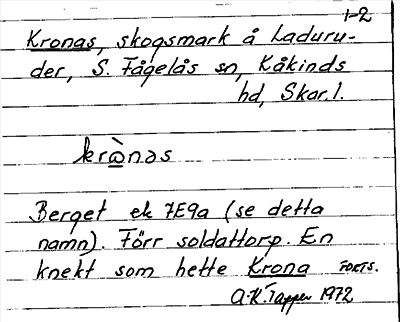 1-2
Kronas, skogsmark å Laduru-
der, S. Fågelås sn, Kåkinds
hd, Skar. l.
krὼnas
Berget ek 7E9a (se detta
namn). Förr soldattorp. En
knekt som hette Krona FORTS.
A-K Tapper 1972